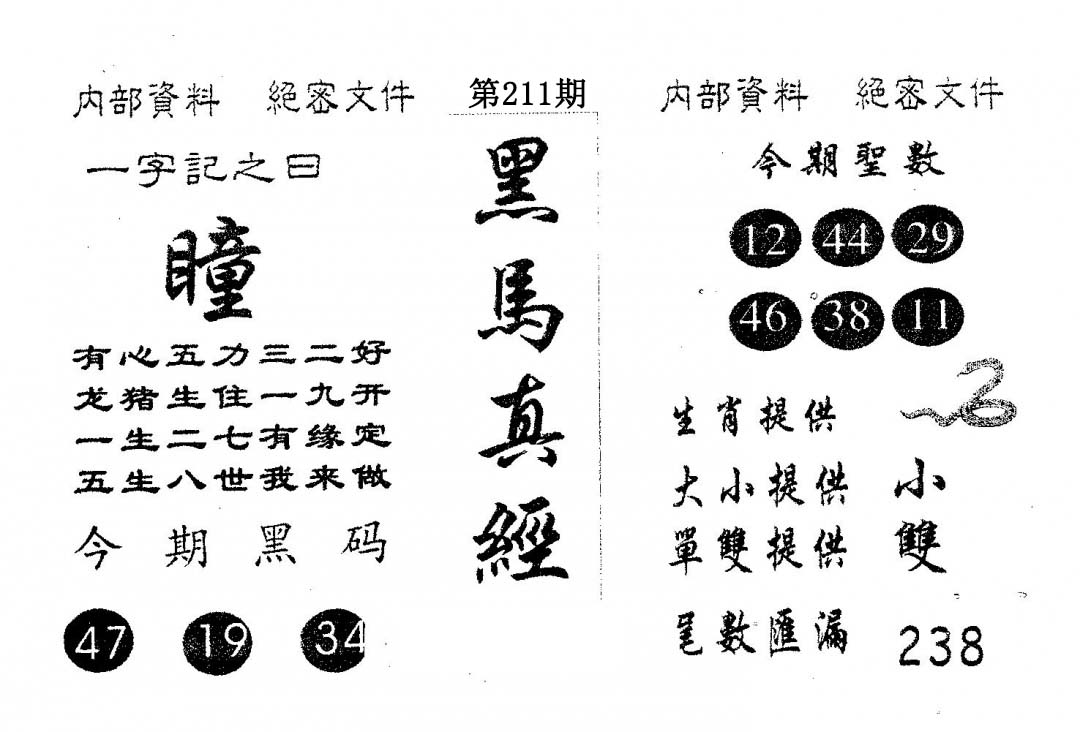 内部資料 絕密文件
一字記之曰
瞳
有心五力三二好
龙猪生住一九开
一生二七有缘定
五生八世我来做
今期黑码
47 19 34
第211期
黑馬真經
内部資料 絕密文件
今期聖數
12 44 29
46 38 11
生肖提供
大小提供 小
單雙提供 雙
尾數匯漏 238